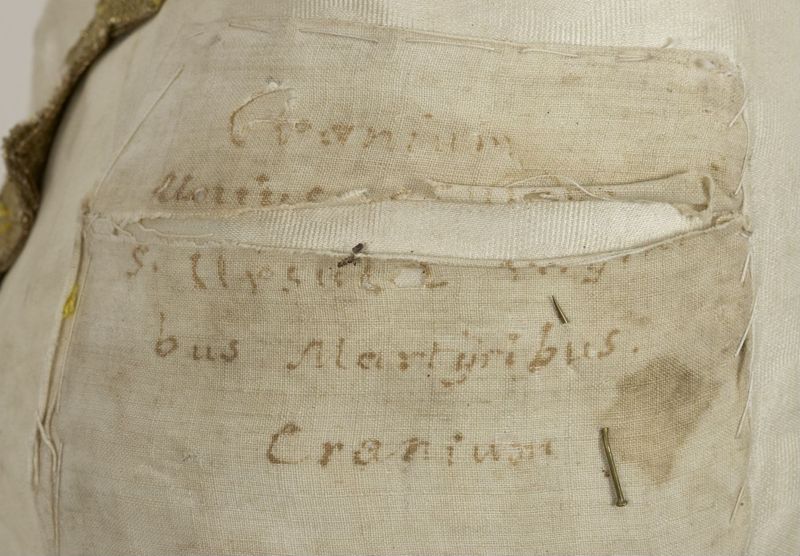 Cranium
Unius
S. Ursula
bus Martyribus.
Cranium